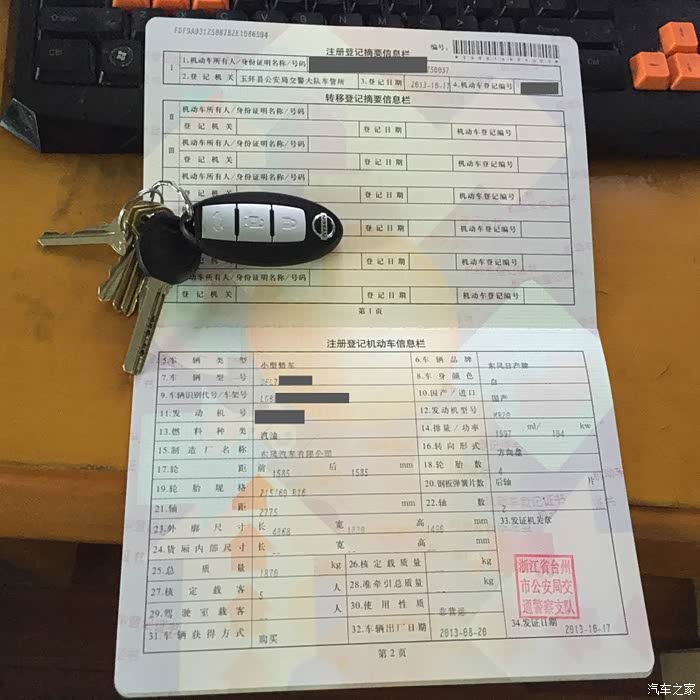 注册登记摘要信息栏 编号:
I 1.机动车所有人/身份证明名称/号码
2.登记机关 玉环县公安局交警大队车管所 3.登记日期 2013-10-17 4.机动车登记编号
转移登记摘要信息栏
II 机动车所有人/身份证明名称/号码
登记机关 登记日期 机动车登记编号
III 机动车所有人/身份证明名称/号码
登记机关 登记日期 机动车登记编号
机动车所有人/身份证明名称/号码
登记日期 机动车登记编号
登记日期 机动车登记编号
登记日期 机动车登记编号
机动车所有人/身份证明名称/号码
登记机关 登记日期 机动车登记编号
第1页
注册登记机动车信息栏
5.车辆类型 小型轿车 6.车辆品牌 东风日产牌
7.车辆型号 8.车身颜色 白
9.车辆识别代号/车架号 10.国产/进口 国产
11.发动机号 12.发动机型号 MR20
13.燃料种类 汽油 14.排量/功率 1997 ml/ 104 kw
15.制造厂名称 东风汽车有限公司 16.转向形式 方向盘
17.轮距 前 1585 后 1585 mm 18.轮胎数 4
19.轮胎规格 215/60 R16 20.钢板弹簧片数 后轴 片
21.轴距 2775 mm 22.轴数 2
23.外廓尺寸 长 4868 宽 高 mm 33.发证机关章
24.货厢内部尺寸 长 宽 高 mm
25.总质量 1876 kg 26.核定载质量 kg
27.核定载客 5 人 28.准牵引总质量 kg
29.驾驶室载客 人 30.使用性质 非营运
31.车辆获得方式 购买 32.车辆出厂日期 2013-08-20 34.发证日期 2013-10-17
浙江省台州
市公安局交
通警察支队
第2页
汽车之家